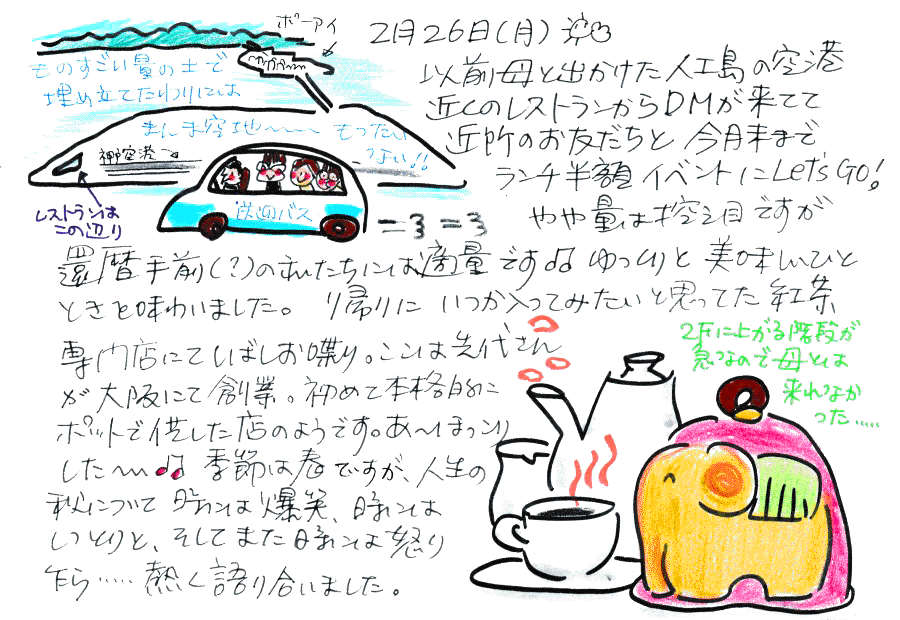 ポーアイ
2月26日(月)
ものすごい量の土で
埋め立てたわりには
まんま空地〜〜〜 もったい
ない!!
神戸空港→
レストランは
この辺り
送迎バス
以前母と出かけた人工島の空港
近くのレストランからDMが来てて
近所のお友だちと今月末まで
ランチ半額イベントにLet's GO!
やや量は控え目ですが
還暦手前(?)の私たちには適量です♫ ゆっくりと美味しいひと
ときを味わいました。 帰りにいつか入ってみたいと思ってた紅茶
専門店にてしばしお喋り。ここは先代さん
が大阪にて創業。初めて本格的に
ポットで供した店のようです。あ〜ほっこり
した〜♫ 季節は春ですが、人生の
秋について時には爆笑、時には
しっとりと、そしてまた時には怒り
ながら……熱く語り合いました。
2Fに上がる階段が
急なので母とは
来れなか
った……